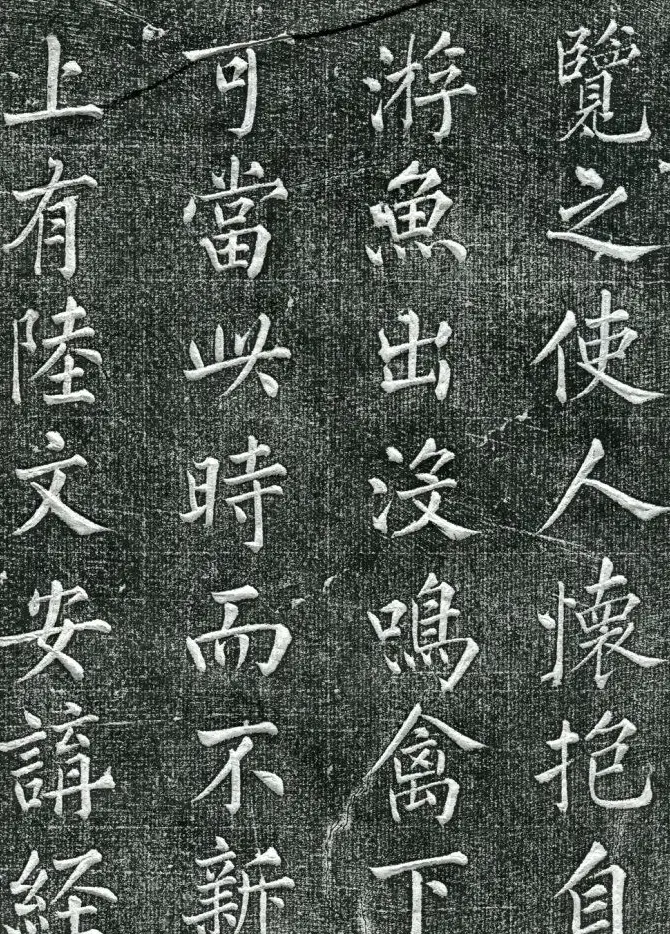 覽之使人懷抱自
游魚出沒鳴禽下
可當此時而不新
上有陸文安講経